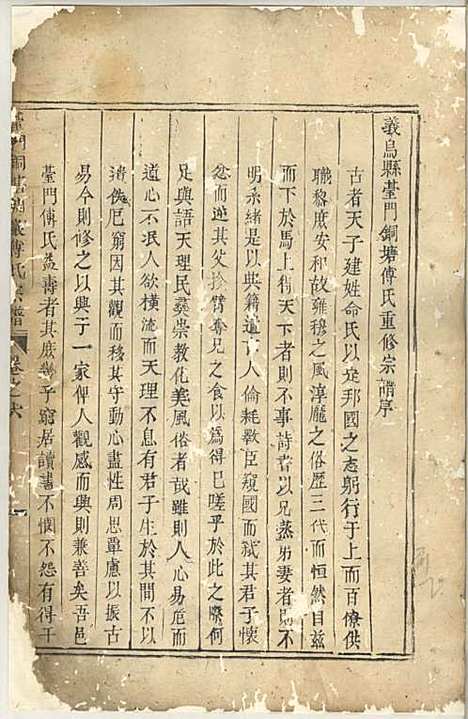 義烏縣臺門銅塘傅氏重修宗譜序
古者天子建姓命氏以定邦國之志躬行于上而百僚供
職黎庶安和故雍穆之風淳龐之俗歷三代而恒然自茲
而下於馬上得天下者則不事詩書以兄蒸弟妻者則不
明承緒是以典籍遺亡人倫耗斁臣窺國而弑其君子懷
忿而逆其父紾臂奪兄之食以為得已嗟乎於此之際何
足與語天理民彝崇教化美風俗者哉雖則人心易危而
道心不泯人欲橫流而天理不息有君子生於其間不以
遺佚厄窮因其觀而移其守動心盡性周思覃慮以振古
易今則修之以興于一家俾人觀感而興則兼善矣吾邑
臺門傅氏益壽者其庶幾乎窮居讀書不憫不怨有得于
臺門銅塘 傅氏宗譜 卷之